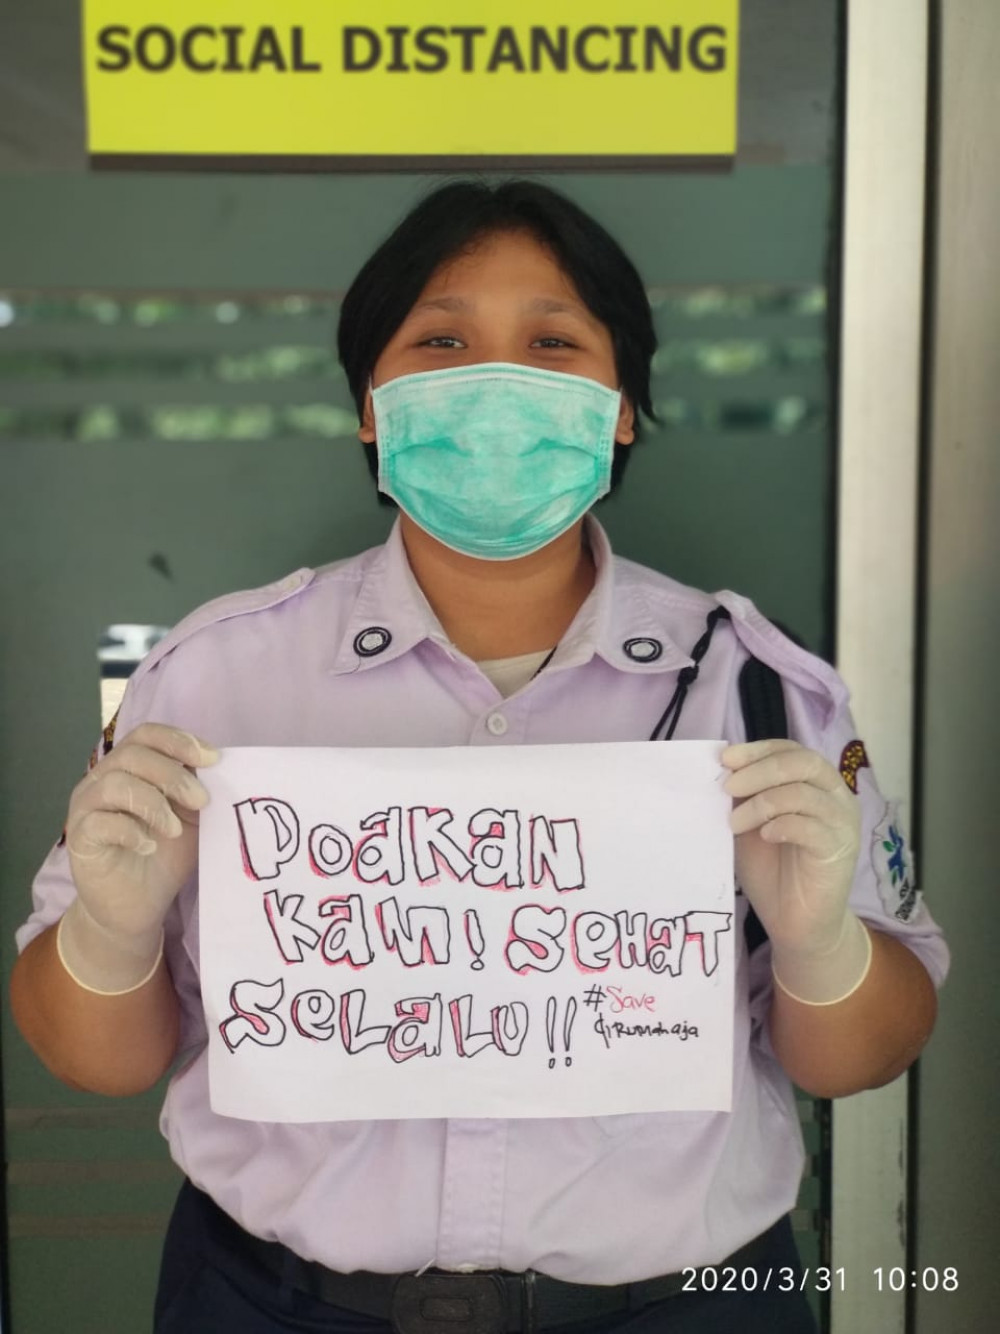 SOCIAL DISTANCING
DOAKAN
KAMI SEHAT
SELALU!!
#Save
dirumahaja
2020/3/31 10:08